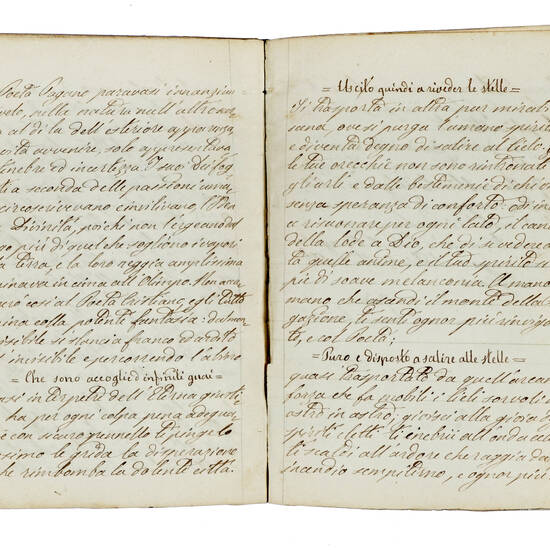 Poeta Pagano paravasi innanzi un
velo, nella natura null'altro
al di là dell'esteriore apparenza,
avvenire, solo appresentava
tenebre ed incertezza. I suoi Dei fog-
a seconda delle passioni uma-
circoscrivevano e invilivano,
Divinità, poichè non l'ergeano dal
più di quel che sogliono i vapori
terra, e la loro reggia amplissima
in cima all'Olimpo. Non acca-
così al Poeta Cristiano, egli
colla potente fantasia: dal mon-
visibile si slancia franco ed ardito
invisibile e percorrendo l'abisso
= Che sono accoglie d'infiniti guai =
in cospetto dell'Eterna giusti-
ha per ogni colpa pena adegua-
e con sicuro pennello ti pinge lo
le grida la disperazione
che rimbomba la dolente città.
= Uscito quindi a riveder le stelle =
Ti trasporta in altra pur mirabil
ove si purga l'umano spirito
e diventa degno di salire al cielo.
le tue orecchie non sono intronate
gli urli e dalle bestemmie di chi è
senza speranza di conforto, odi in-
a risuonare per ogni lato, il can-
della lode a Dio, che di se vedere
queste anime, e il tuo spirito si
più di soave melanconia. A mano
mano che ascendi il monte della
gazione, ti senti ognor più rinvigo-
to, e col Poeta;
= Puro e disposto a salire alle stelle =
quasi trasportato da quell'arcana
forza che fa mobili i cieli sorvoli
astro in astro; gioisci alla gioia
spirti eletti t'inebrii all'onda
ti scaldi all'ardore che raggia da
incendio sempiterno, e ognor più